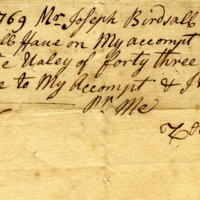 769 Mr Joseph Birdsall
Have on My accompt
Valey of forty three
to My Accompt &
Pr Me